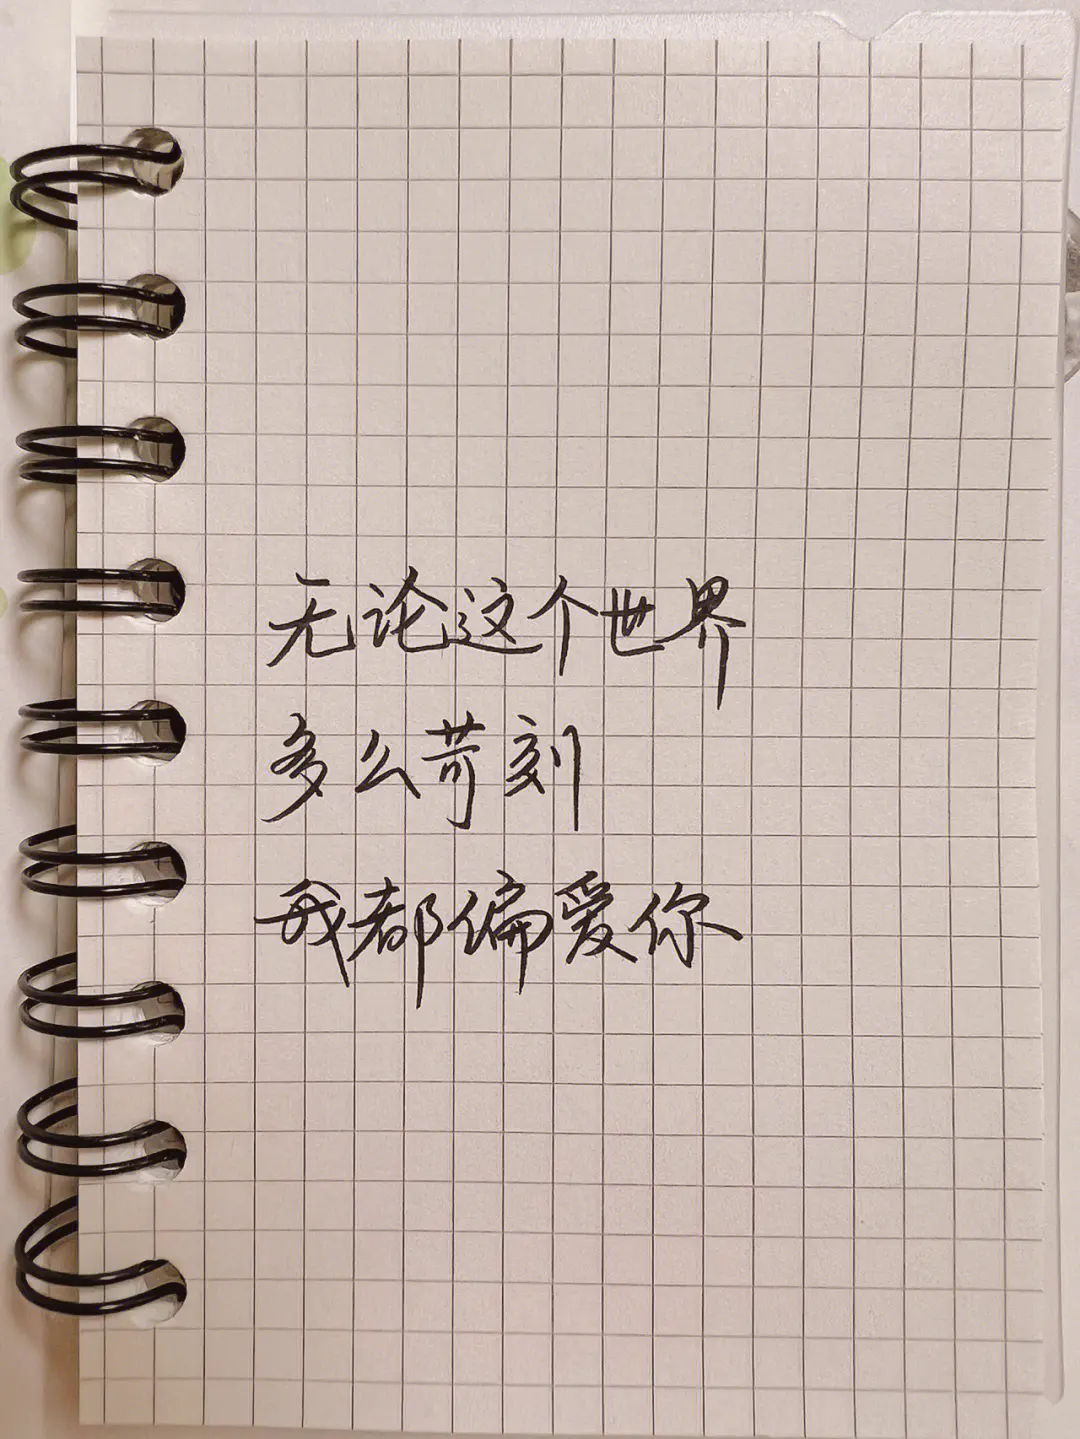 无论这个世界
多么苛刻
我都偏爱你